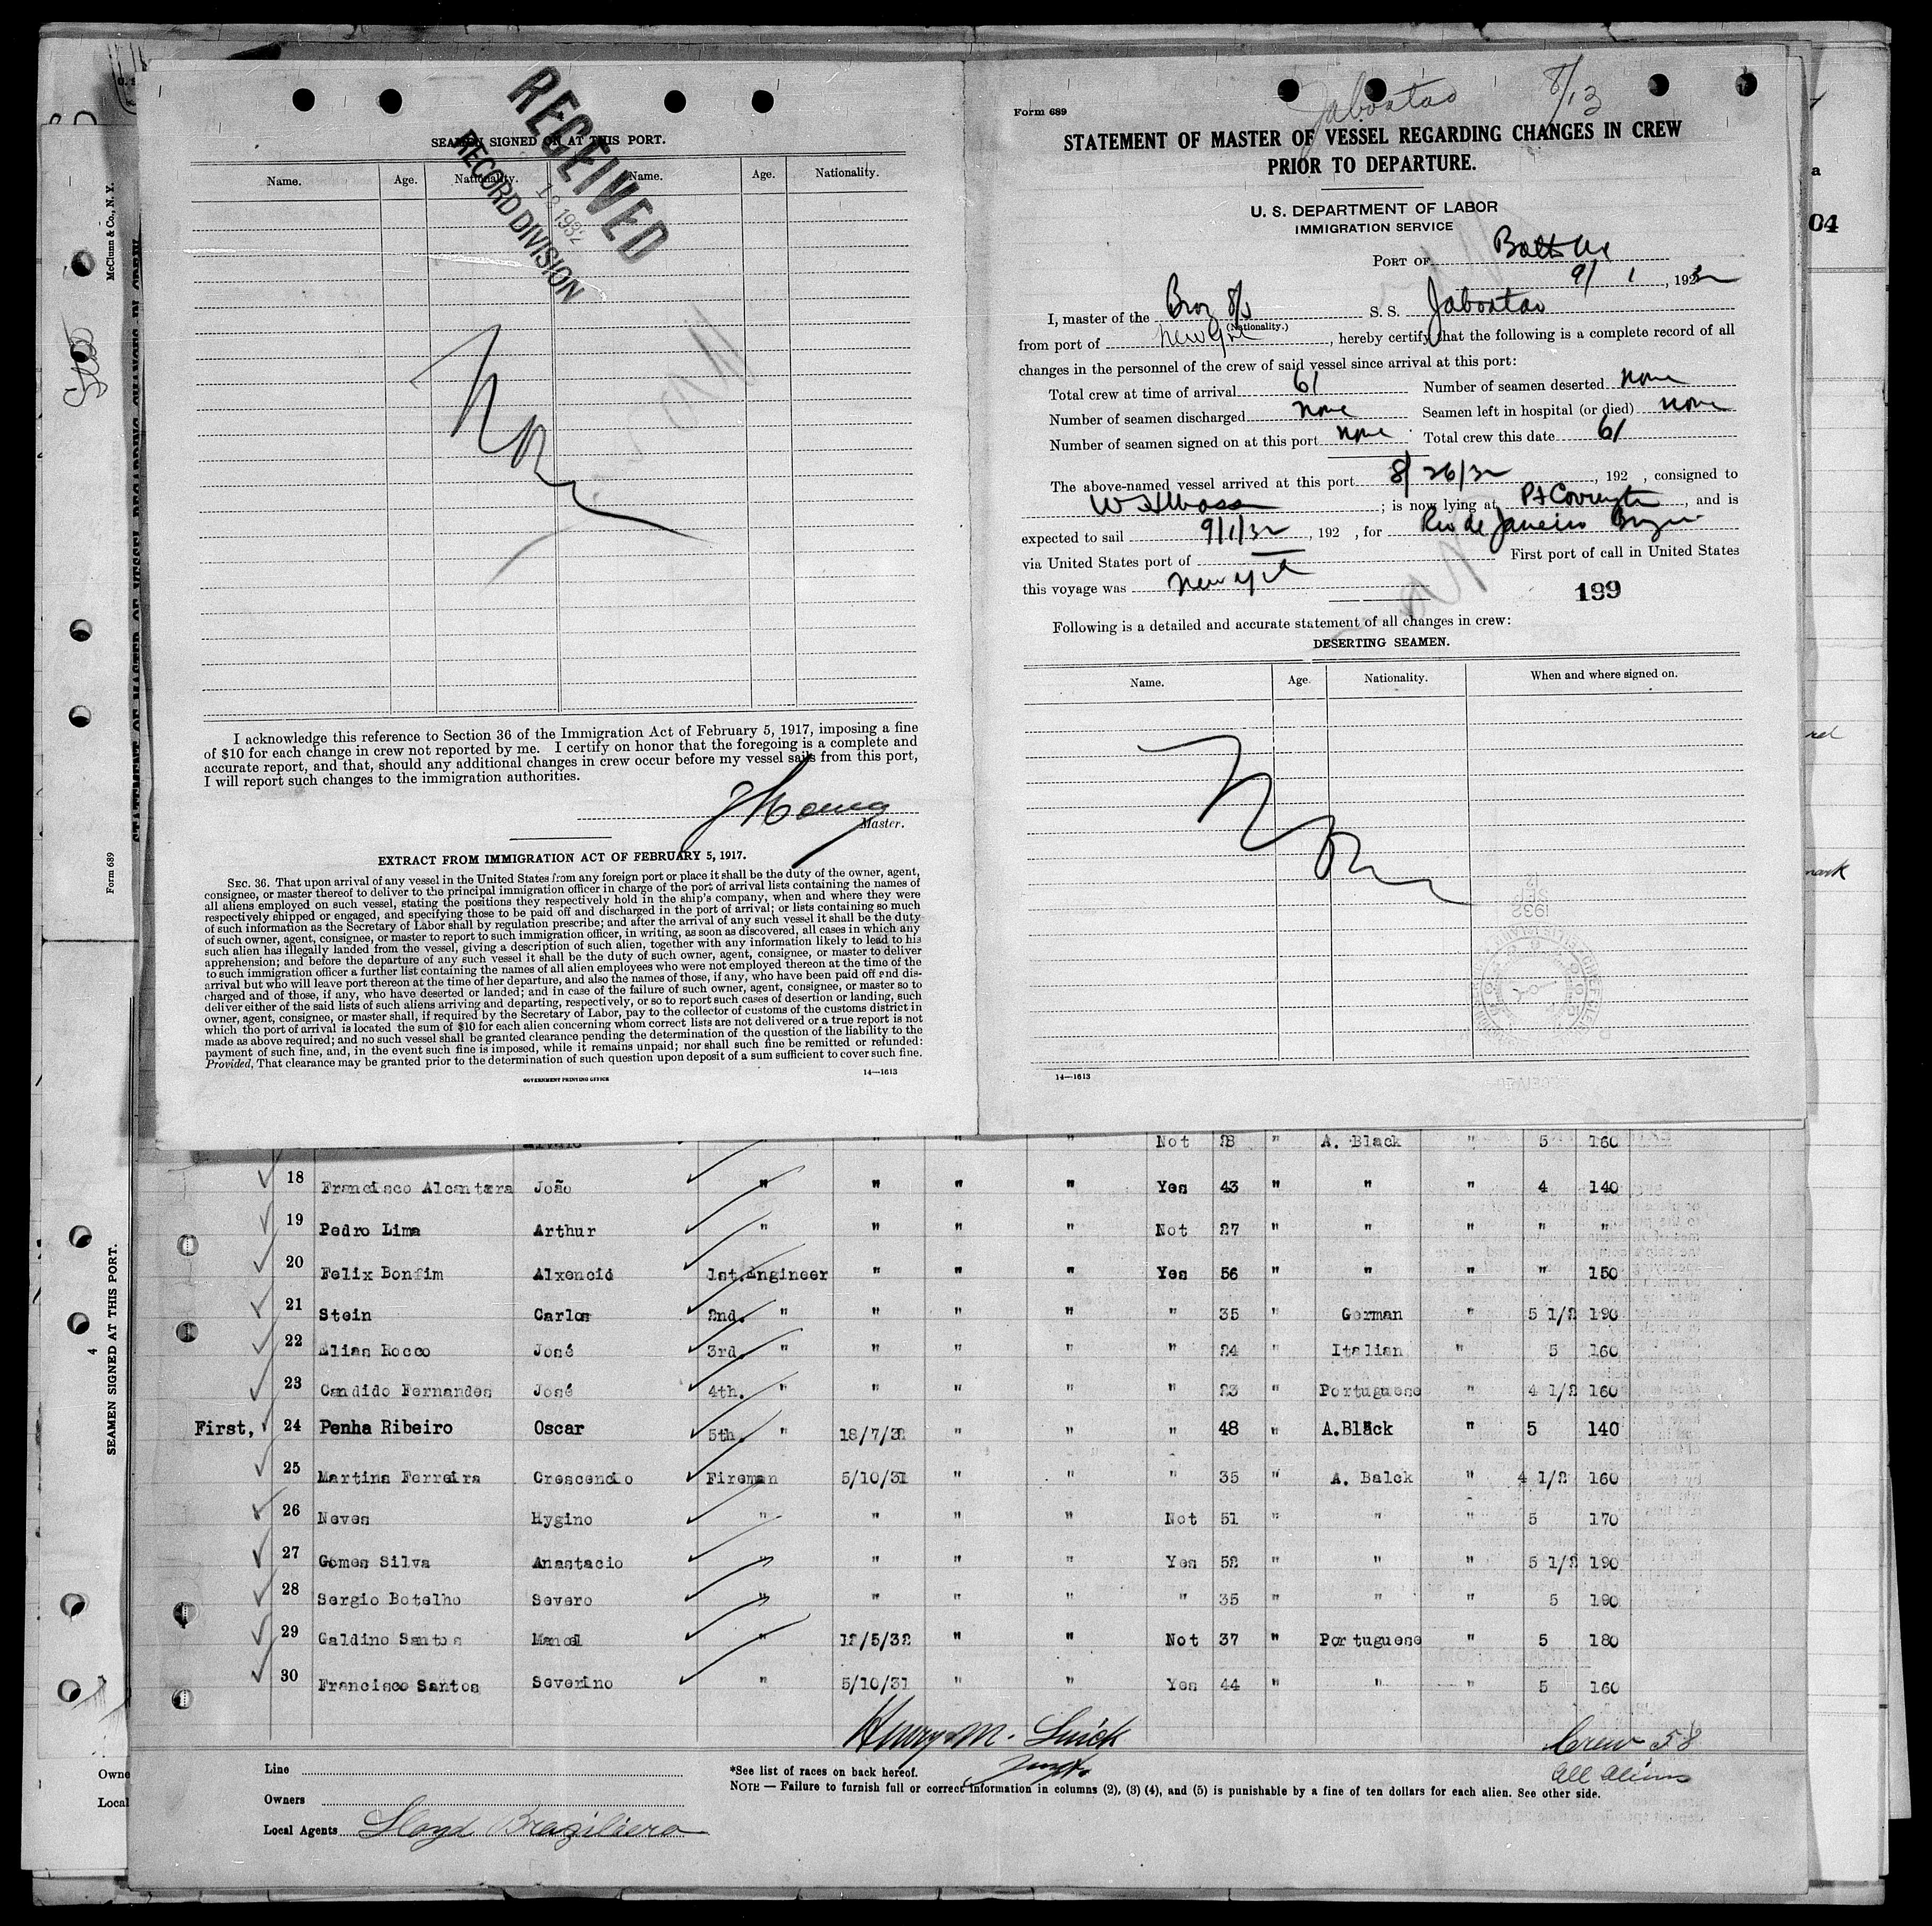 SEAMEN SIGNED ON AT THIS PORT.
Name. Age. Nationality. Name. Age. Nationality.
RECEIVED
1932
RECORD DIVISION
I acknowledge this reference to Section 36 of the Immigration Act of February 5, 1917, imposing a fine
of $10 for each change in crew not reported by me. I certify on honor that the foregoing is a complete and
accurate report, and that, should any additional changes in crew occur before my vessel sails from this port,
I will report such changes to the immigration authorities.
Master.
EXTRACT FROM IMMIGRATION ACT OF FEBRUARY 5, 1917.
SEC. 36. That upon arrival of any vessel in the United States from any foreign port or place it shall be the duty of the owner, agent,
consignee, or master thereof to deliver to the principal immigration officer in charge of the port of arrival lists containing the names of
all aliens employed on such vessel, stating the positions they respectively hold in the ship's company, when and where they were
respectively shipped or engaged, and specifying those to be paid off and discharged in the port of arrival; or lists containing so much
of such information as the Secretary of Labor shall by regulation prescribe; and after the arrival of any such vessel it shall be the duty
of such owner, agent, consignee, or master to report to such immigration officer, in writing, as soon as discovered, all cases in which any
such alien has illegally landed from the vessel, giving a description of such alien, together with any information likely to lead to his
apprehension; and before the departure of any such vessel it shall be the duty of such owner, agent, consignee, or master to deliver
to such immigration officer a further list containing the names of all alien employees who were not employed thereon at the time of the
arrival but who will leave port thereon at the time of her departure, and also the names of those, if any, who have been paid off and dis-
charged and of those, if any, who have deserted or landed; and in case of the failure of such owner, agent, consignee, or master so to
deliver either of the said lists of such aliens arriving and departing, respectively, or so to report such cases of desertion or landing, such
owner, agent, consignee, or master shall, if required by the Secretary of Labor, pay to the collector of customs of the customs district in
which the port of arrival is located the sum of $10 for each alien concerning whom correct lists are not delivered or a true report is not
made as above required; and no such vessel shall be granted clearance pending the determination of the question of the liability to the
payment of such fine, and, in the event such fine is imposed, while it remains unpaid; nor shall such fine be remitted or refunded:
Provided, That clearance may be granted prior to the determination of such question upon deposit of a sum sufficient to cover such fine.
14—1613
GOVERNMENT PRINTING OFFICE
Jaboatao 8/13
Form 689
STATEMENT OF MASTER OF VESSEL REGARDING CHANGES IN CREW
PRIOR TO DEPARTURE.
U. S. DEPARTMENT OF LABOR
IMMIGRATION SERVICE
PORT OF Balto Md
9/ 1, 1932
I, master of the Braz S/S S. S. Jaboatao
(Nationality.)
from port of New York, hereby certify that the following is a complete record of all
changes in the personnel of the crew of said vessel since arrival at this port:
Total crew at time of arrival 61 Number of seamen deserted none
Number of seamen discharged none Seamen left in hospital (or died) none
Number of seamen signed on at this port none Total crew this date 61
The above-named vessel arrived at this port 8/26/32, 192 , consigned to
; is now lying at Pt Covington, and is
expected to sail 9/1/32, 192 , for Rio de Janeiro Brazil
via United States port of First port of call in United States
this voyage was New York
199
Following is a detailed and accurate statement of all changes in crew:
DESERTING SEAMEN.
Name. Age. Nationality. When and where signed on.
None
14—1613
McClunn & Co., N. Y.
Form 689
4
SEAMEN SIGNED AT THIS PORT.
04
" " " Not 28 " A. Black " 5 160
18 Francisco Alcantara João " " " " Yes 43 " " " 4 140
19 Pedro Lima Arthur " " " " Not 27 " " " " "
20 Felix Bonfim Alxencio 1st.Engineer " " " Yes 56 " " " " 150
21 Stein Carlos 2nd. " " " " " 35 " German " 5 1/2 190
22 Elias Rocco José 3rd. " " " " " 24 " Italian " 5 160
23 Candido Fernandes José 4th. " " " " " 23 " Portuguese " 4 1/2 160
First, 24 Penha Ribeiro Oscar 5th. " 18/7/32 " " " 48 " A.Black " 5 140
25 Martins Ferreira Crescencio Fireman 5/10/31 " " " 35 " A. Balck " 4 1/2 160
26 Neves Hygino " " " " Not 51 " " " 5 170
27 Gomes Silva Anastacio " " " " Yes 52 " " " 5 1/2 190
28 Sergio Botelho Severo " " " " " 35 " " " 5 190
29 Galdino Santos Manoel " 12/5/32 " " Not 37 " Portuguese " 5 180
30 Francisco Santos Severino " 5/10/31 " " Yes 44 " " " 5 160
Crew 58
All Aliens
Line
Owners
Local Agents Lloyd Braziliero
*See list of races on back hereof.
NOTE — Failure to furnish full or correct information in columns (2), (3) (4), and (5) is punishable by a fine of ten dollars for each alien. See other side.